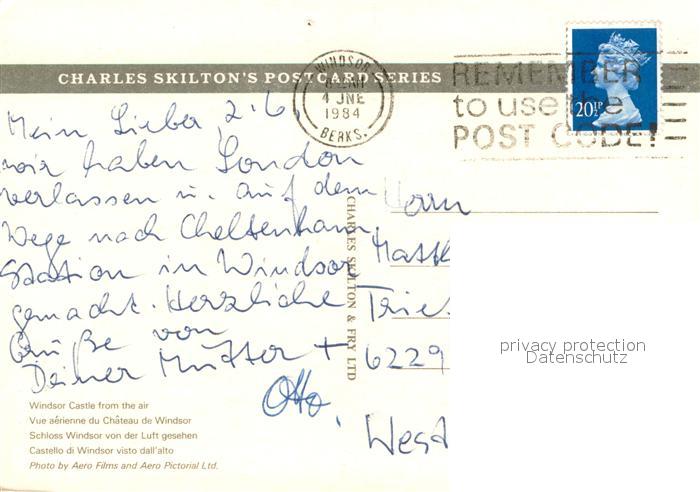 CHARLES SKILTON'S POSTCARD SERIES
WINDSOR
4 JNE
1984
BERKS.
REMEMBER
to use the
POST CODE!
20½P
Mein Lieber, 2.6.
wir haben London
verlassen u. auf dem
Wege nach Cheltenham
Station in Windsor
gemacht. Herzliche
Grüße von
Deiner Mutter +
Otto.
CHARLES SKILTON & FRY LTD
Herrn
6229
West
privacy protection
Datenschutz
Windsor Castle from the air
Vue aérienne du Château de Windsor
Schloss Windsor von der Luft gesehen
Castello di Windsor visto dall'alto
Photo by Aero Films and Aero Pictorial Ltd.